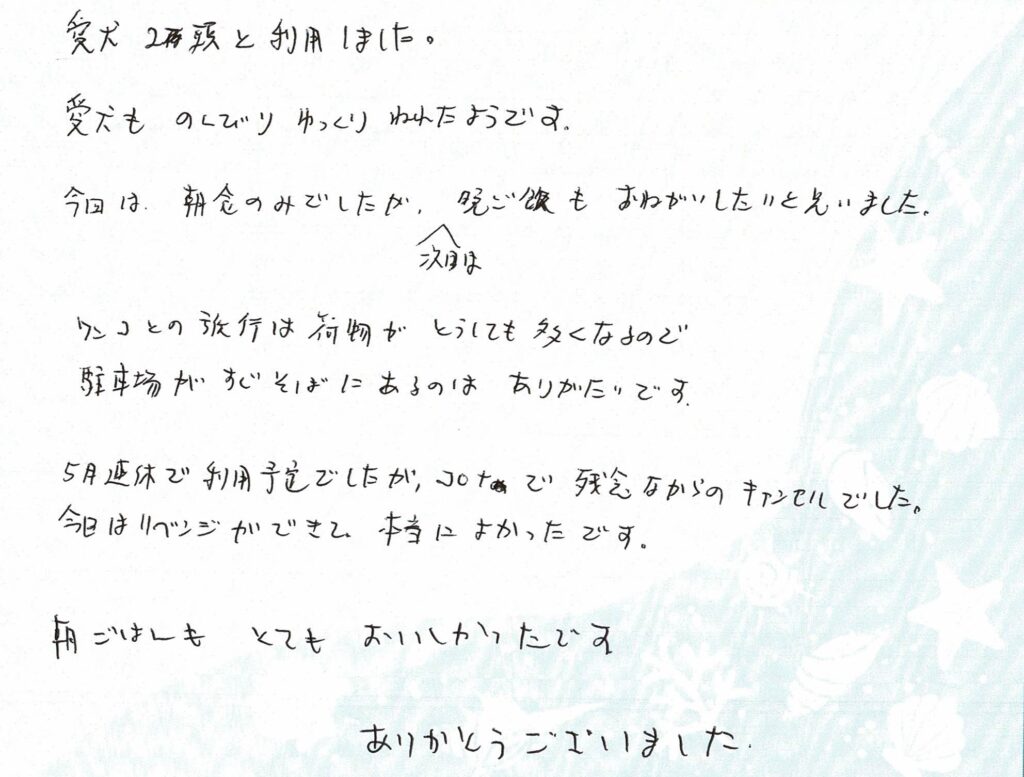 愛犬 2頭と利用しました。
愛犬も のんびり ゆっくり ねれたようです。
今回は、朝食のみでしたが、次回は 晩ご飯も おねがいしたいと思いました。
ワンコとの旅行は荷物が どうしても多くなるので
駐車場が すぐそばにあるのは ありがたいです。
5月連休で利用予定でしたが、コロナで 残念ながらの キャンセルでした。
今日はリベンジができて、本当に よかったです。
朝ごはんも とても おいしかったです
ありがとうございました。